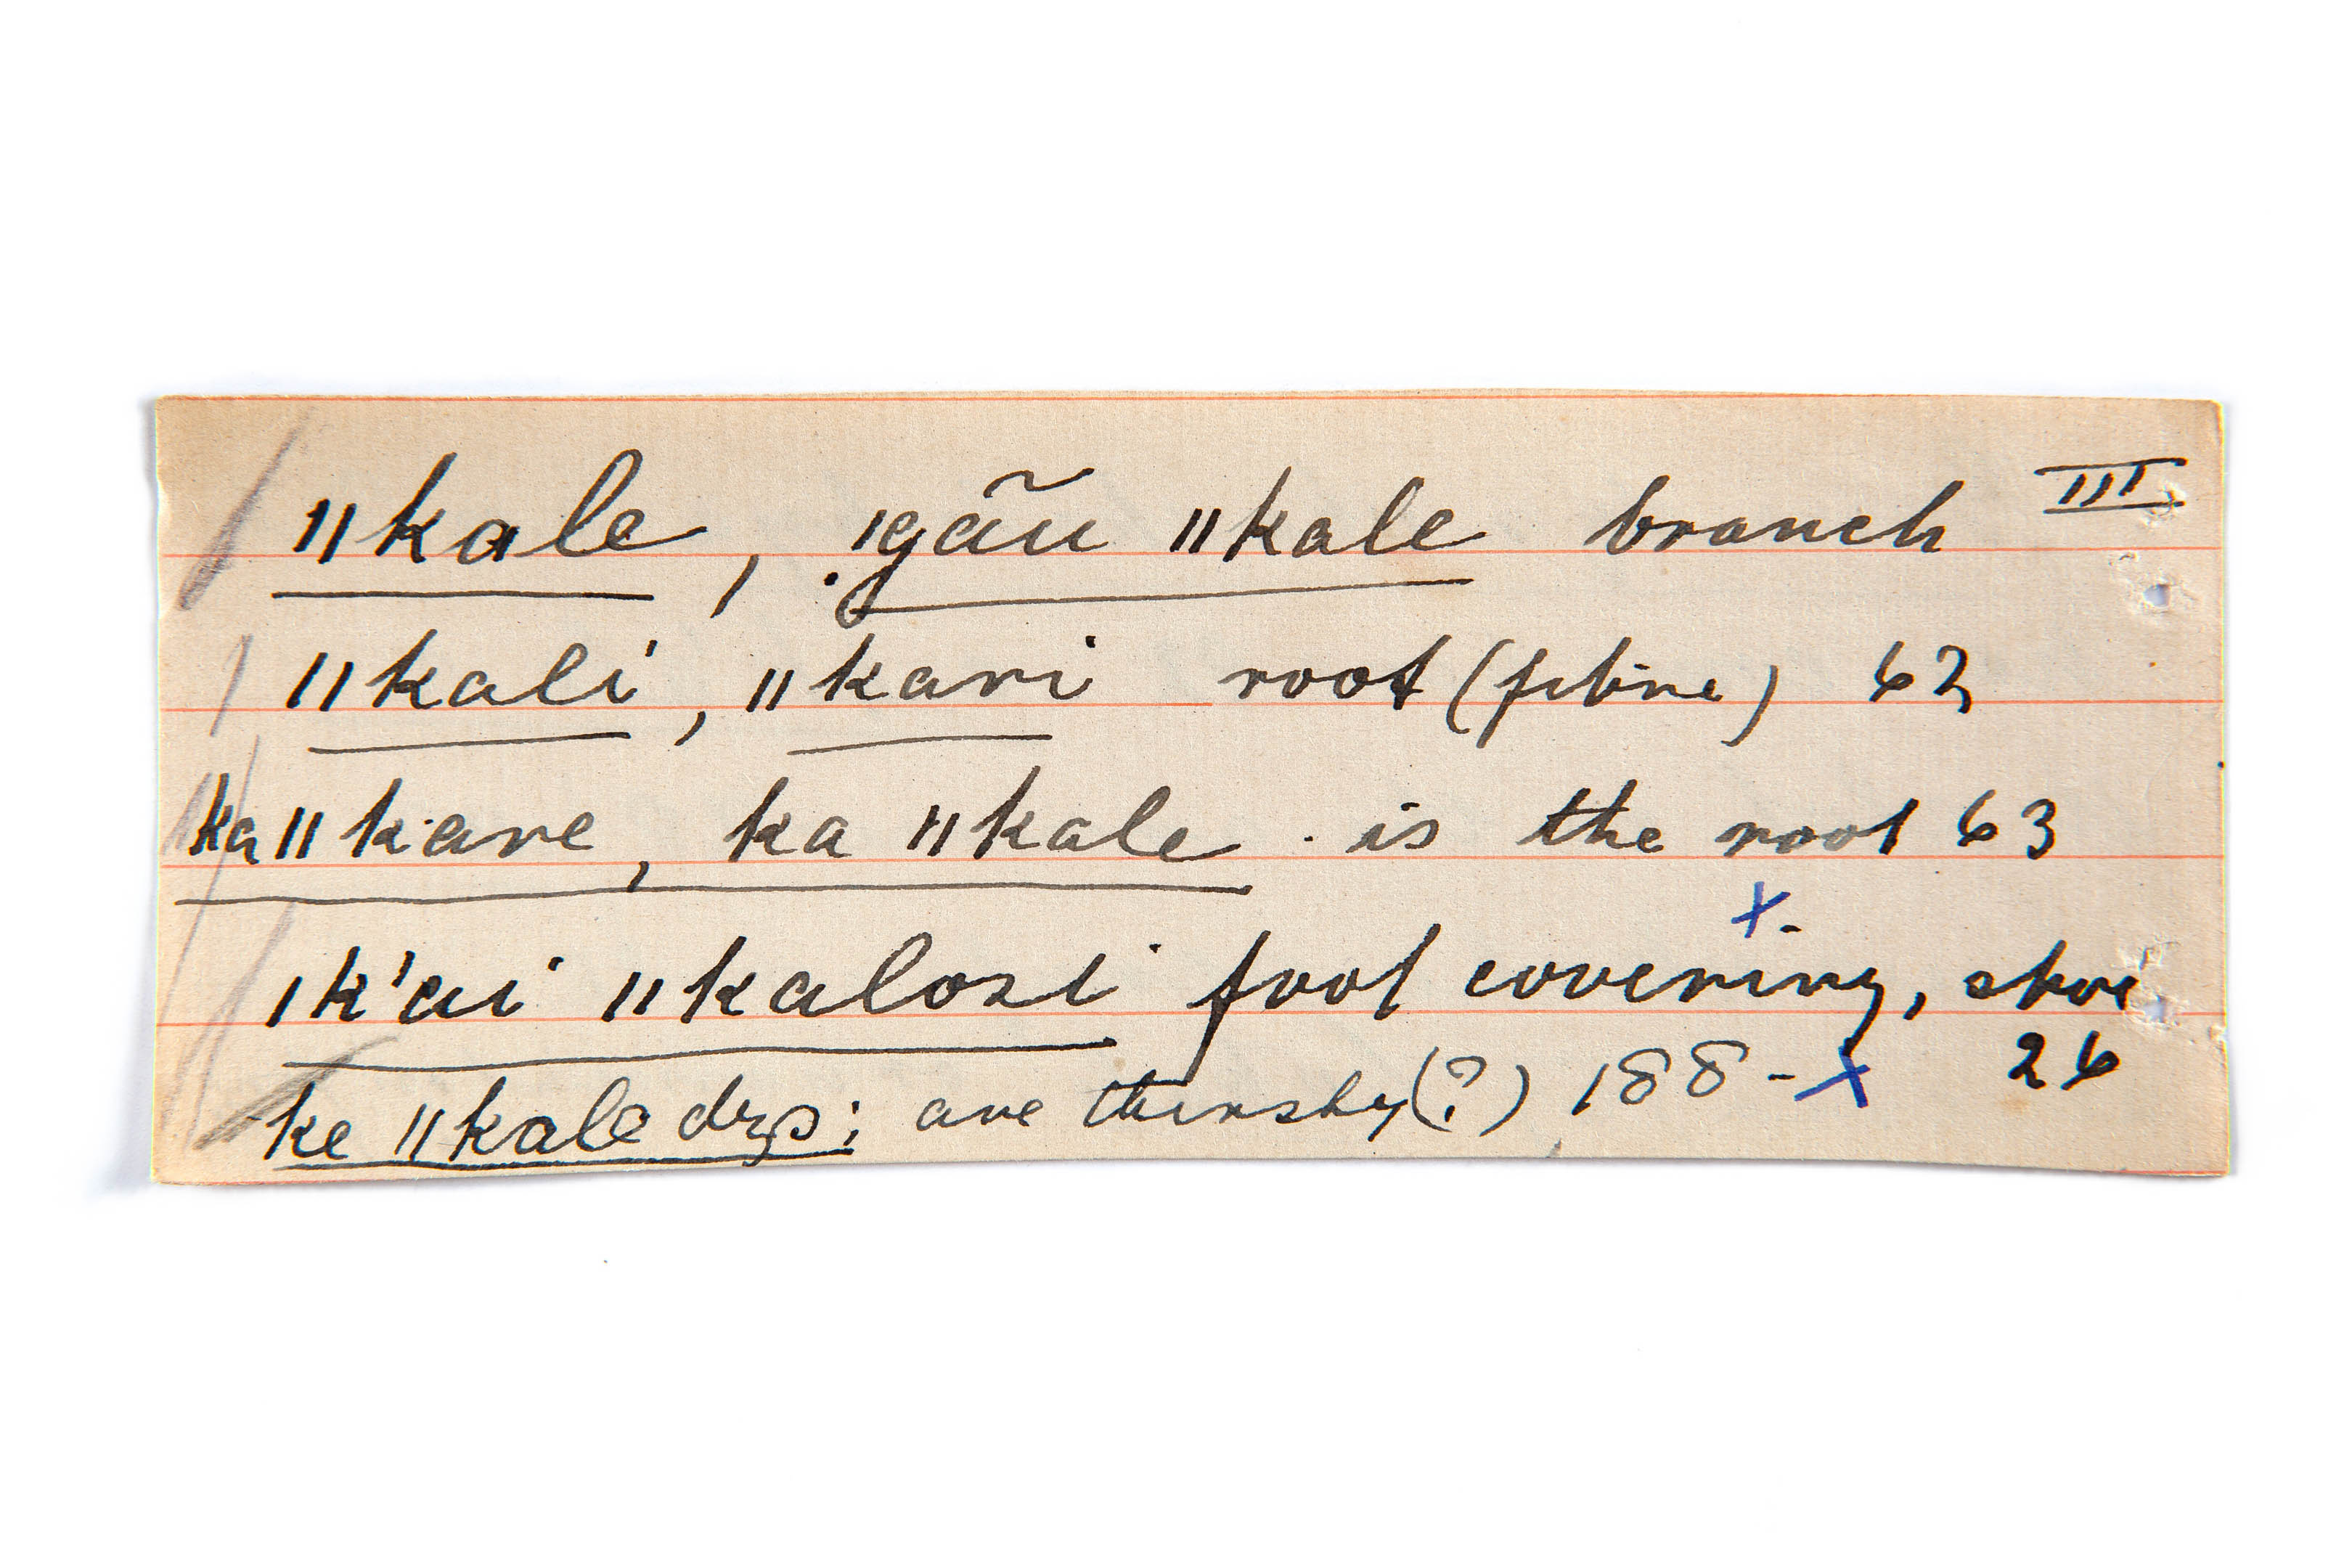 ǁkale, ǀgãu ǁkale branch III
ǁkali, ǁkari root (fibre) 62
ka ǁkare, ka ǁkale is the root 63
ǀk'ai ǁkalosi foot covering, shoe
26
ke ǁkale are thirsty(?) 188 - X